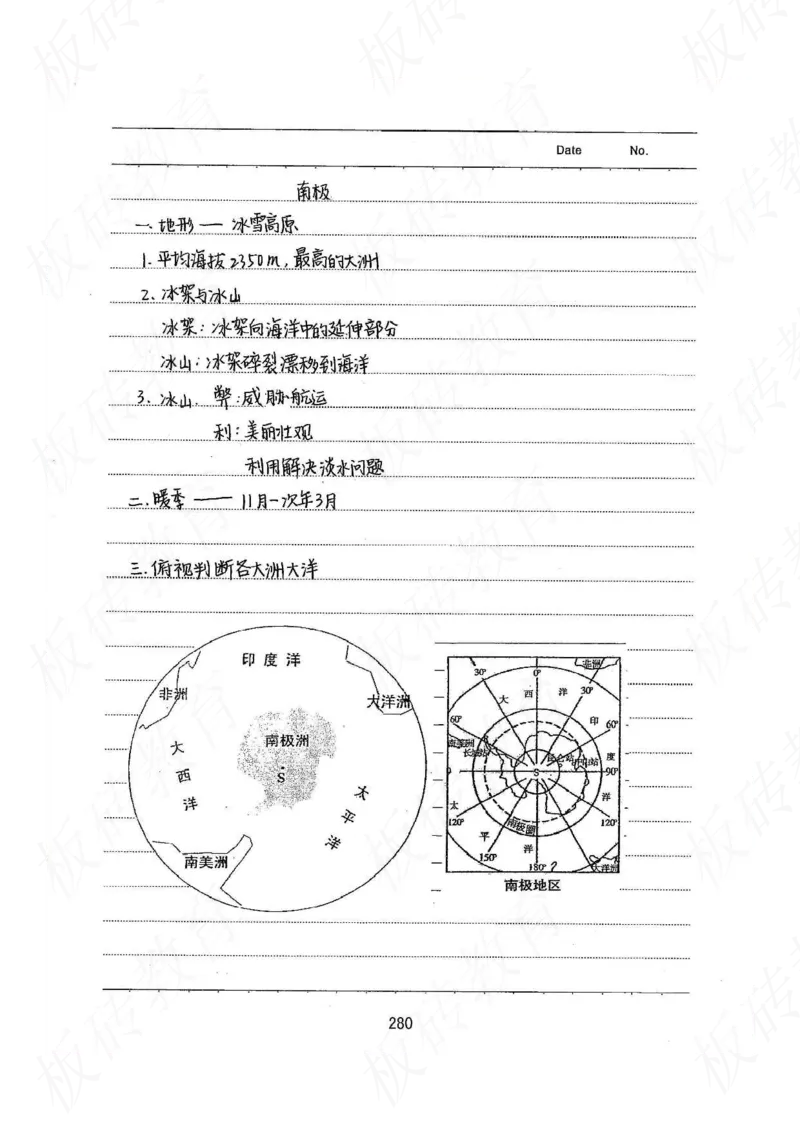 Date No.
南极
一. 地形 — 冰雪高原
1. 平均海拔2350m,最高的大洲
2. 冰架与冰山
冰架:冰架向海洋中的延伸部分
冰山:冰架碎裂漂移到海洋
3. 冰山. 弊:威胁航运
利:美丽壮观
利用解决淡水问题
二. 暖季 —— 11月-次年3月
三. 俯视判断各大洲大洋
印度洋
非洲
大洋洲
南极洲
S
大西洋
太平洋
南美洲
非洲
30° 0° 30°
大西洋
60° 印 60°
南美洲
长城站 昆仑站 中山站
度
S 90°
洋
太
120° 南极圈 120°
平
洋
150° 180°
大洋洲
南极地区
280
板砖教育